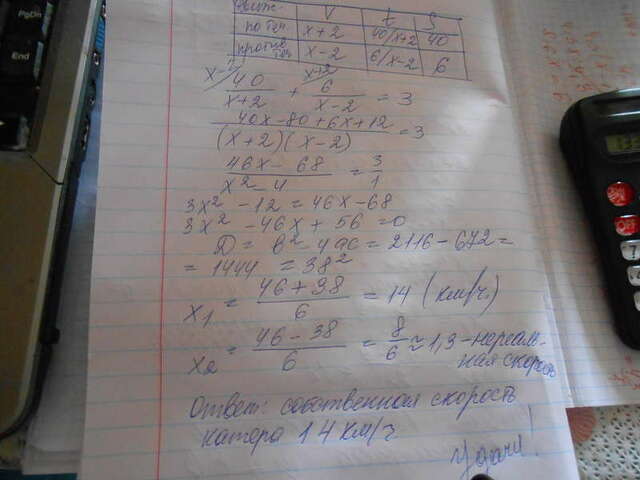 PgDn
End
Движ. V t S
по теч. x+2 40/x+2 40
против теч x-2 6/x-2 6
x-2/ 40/x+2 + x+2/ 6/x-2 = 3
40x-80+6x+12/(x+2)(x-2) = 3
46x-68/x²-4 = 3/1
3x²-12=46x-68
3x²-46x+56=0
D = b²-4ac = 2116-672=
= 1444 = 38²
x₁ = 46+38/6 = 14 (км/ч.)
x₂ = 46-38/6 = 8/6 ≈ 1,3 - нереаль-
ная скорость
Ответ: собственная скорость
катера 14 км/ч
Удачи!